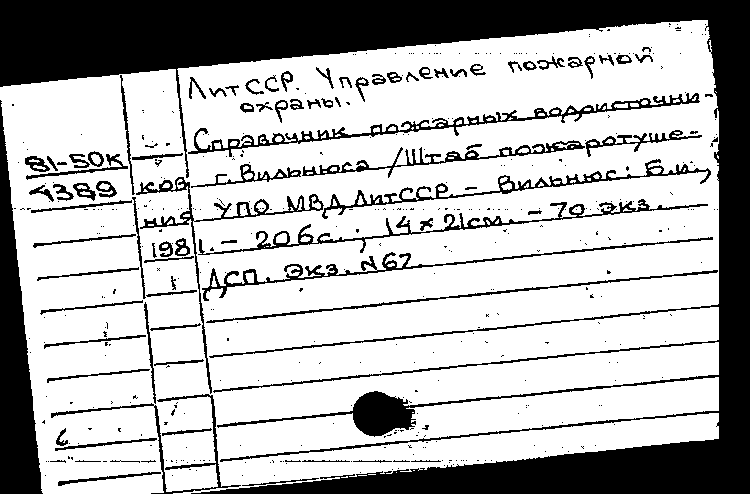 ЛитССР. Управление пожарной
охраны.
Справочник пожарных водоисточни-
81-50к
ков г. Вильнюса / Штаб пожаротуше-
4389
ния УПО МВД ЛитССР. - Вильнюс: Б.и.,
1981. - 206с.; 14 × 21см. - 70 экз.
ДСП. Экз. №67.